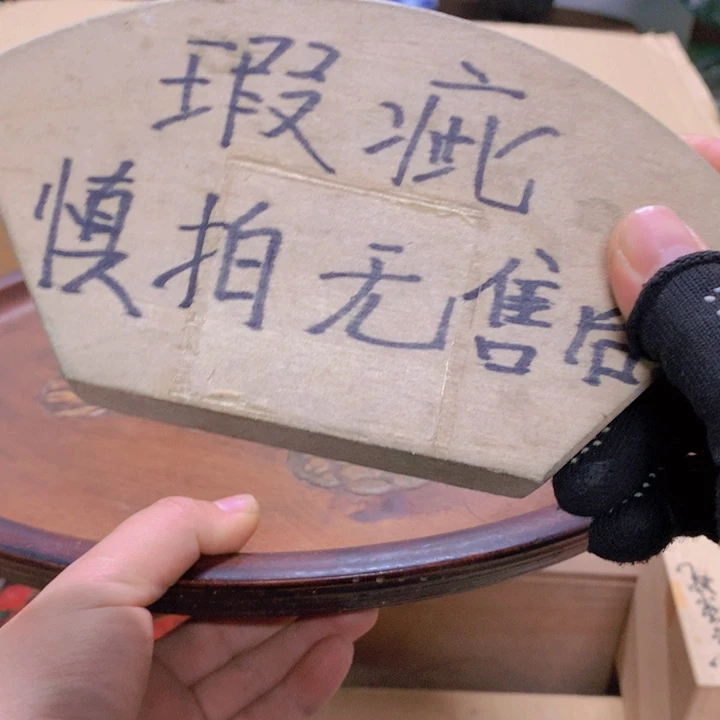 瑕疵
慎拍无售后